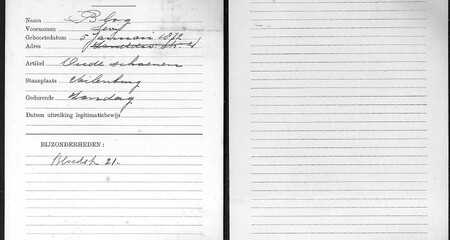 Naam Blog
Voornamen Levy
Geboortedatum 5 Januari 1872
Adres Zanddw. str. 4
Artikel Oude schoenen
Staanplaats Uilenburg
Gedurende Zondag
Datum uitreiking legitimatiebewijs
BIJZONDERHEDEN:
Bloedstr. 21.